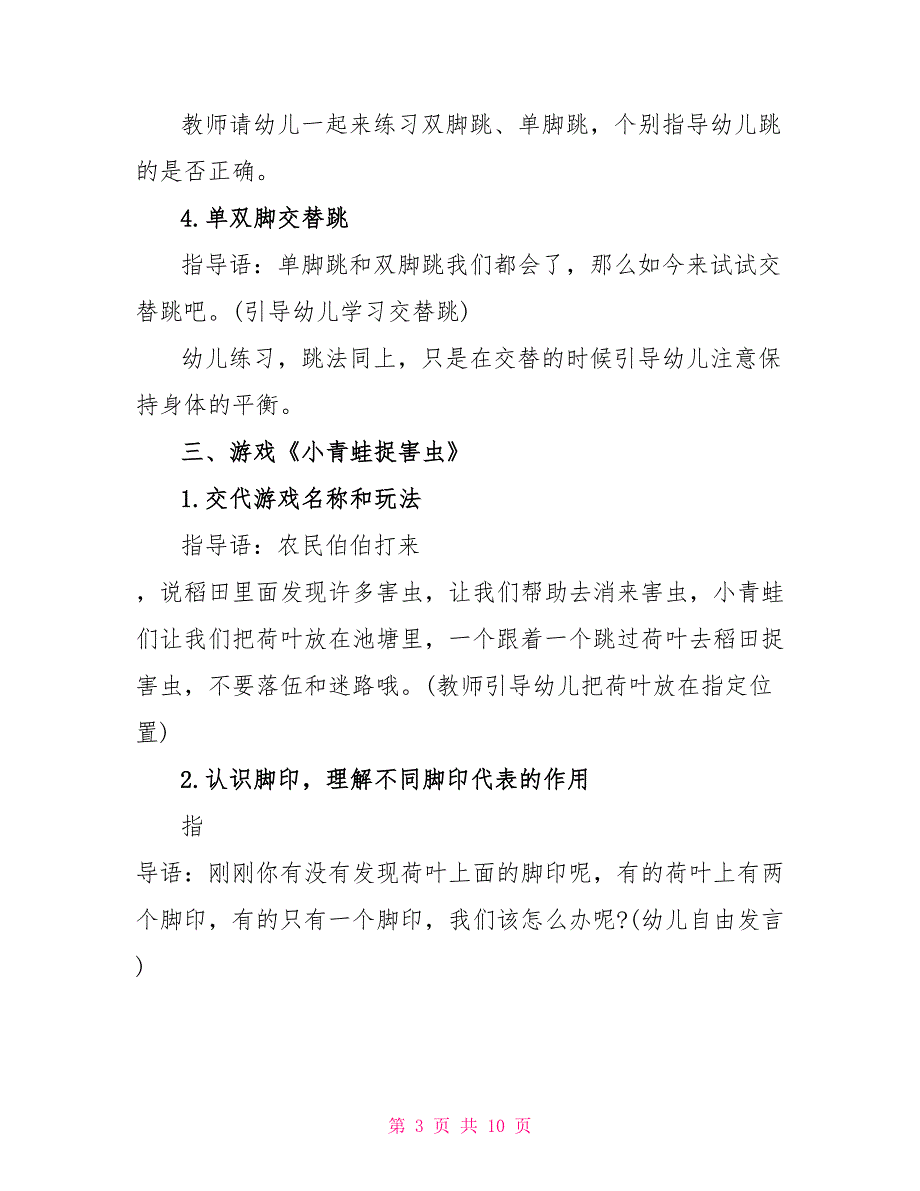 教师请幼儿一起来练习双脚跳、单脚跳，个别指导幼儿跳
的是否正确。
4.单双脚交替跳
指导语：单脚跳和双脚跳我们都会了，那么如今来试试交
替跳吧。(引导幼儿学习交替跳)
幼儿练习，跳法同上，只是在交替的时候引导幼儿注意保
持身体的平衡。
三、游戏《小青蛙捉害虫》
1.交代游戏名称和玩法
指导语：农民伯伯打来
，说稻田里面发现许多害虫，让我们帮助去消来害虫，小青蛙
们让我们把荷叶放在池塘里，一个跟着一个跳过荷叶去稻田捉
害虫，不要落伍和迷路哦。(教师引导幼儿把荷叶放在指定位
置)
2.认识脚印，理解不同脚印代表的作用
指
导语：刚刚你有没有发现荷叶上面的脚印呢，有的荷叶上有两
个脚印，有的只有一个脚印，我们该怎么办呢?(幼儿自由发言
)
第 3 页 共 10 页